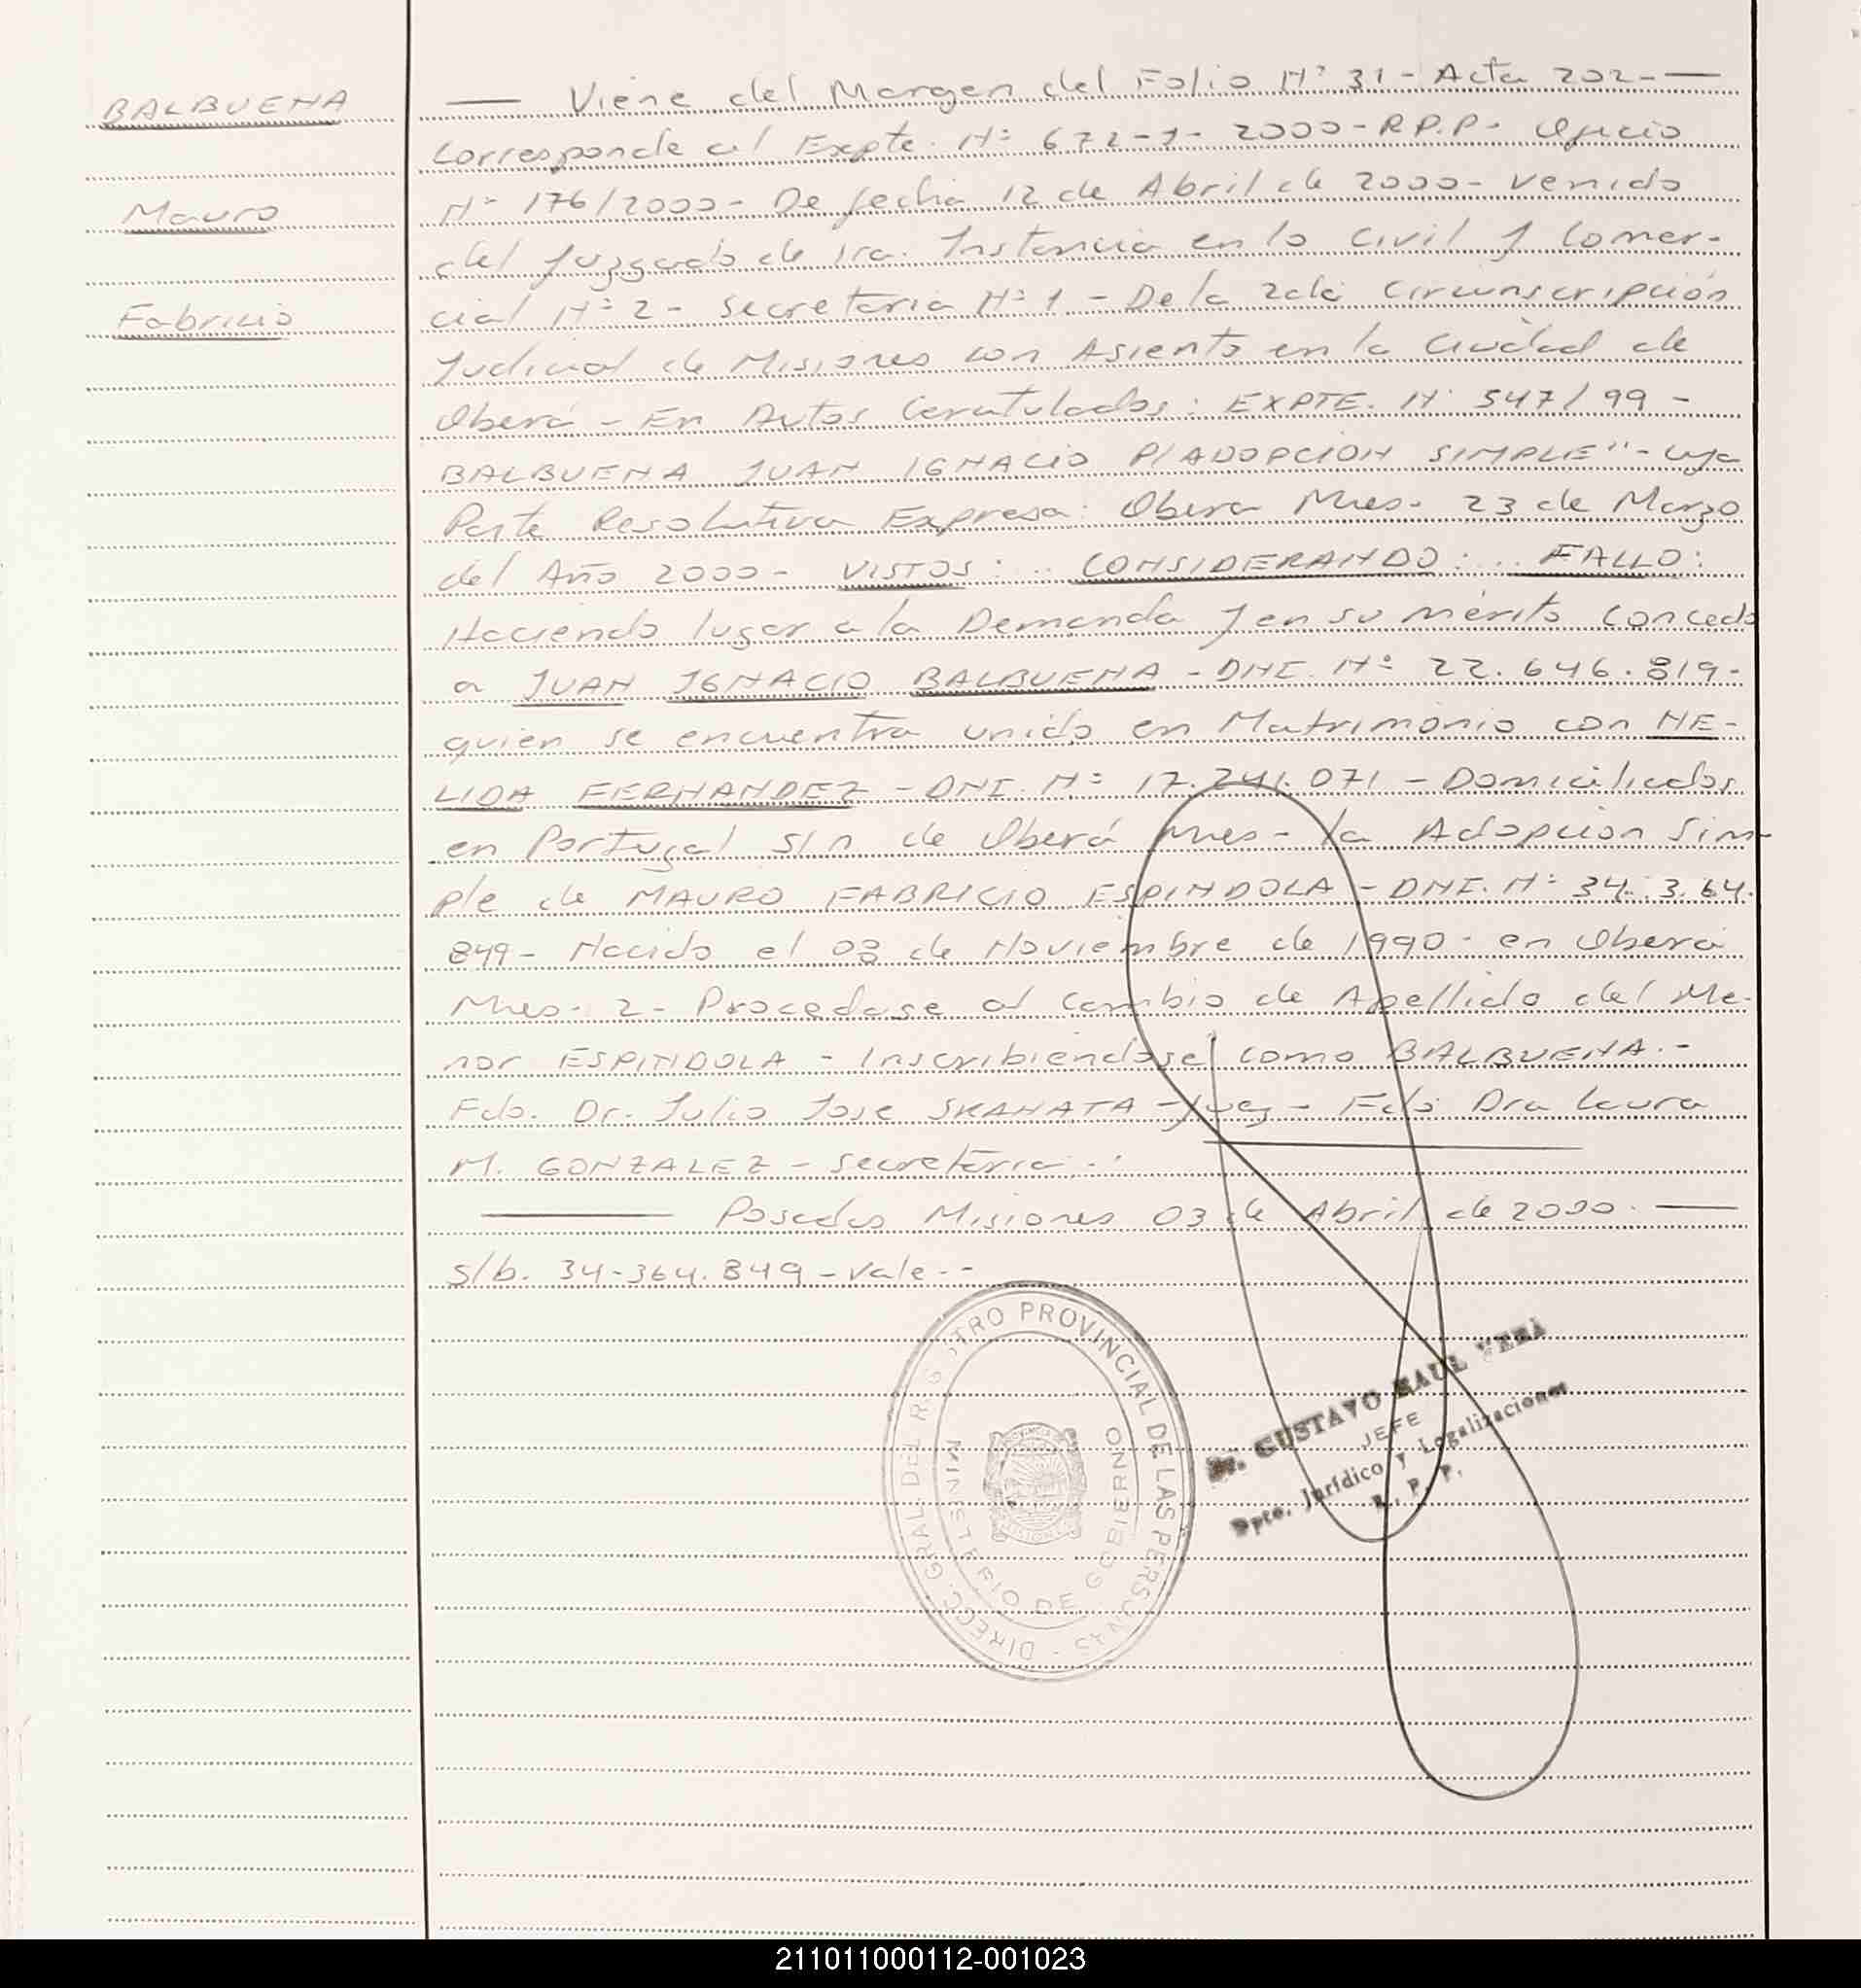 BALBUENA
Mauro
Fabricio
— Viene del Margen del Folio Nº 31 - Acta 202 - —
Corresponde al Expte. Nº 672-1- 2000 - R.P.P- Oficio
Nº 176/2000 - De fecha 12 de Abril de 2000 - venido
del Juzgado de 1ra. Instancia en lo Civil y Comer-
cial Nº 2 - Secretaria Nº 1 - De la 2da Circunscripción
Judicial de Misiones con Asiento en la Ciudad de
Oberá - En Autos Caratulados: EXPTE. Nº 547/99 -
BALBUENA JUAN IGNACIO P/ADOPCION SIMPLE" - cuya
Parte Resolutiva Expresa: Obera Mnes. 23 de Marzo
del Año 2000 - VISTOS: .. CONSIDERANDO: .. FALLO:
Haciendo lugar a la Demanda y en su mérito concedo
a JUAN IGNACIO BALBUENA - DNI. Nº 22.646.819 -
quien se encuentra unido en Matrimonio con NE-
LIDA FERNANDEZ - DNI. Nº 17.241.071 - Domiciliados
en Portugal s/n de Oberá Mnes - la Adopcion Sim-
ple de MAURO FABRICIO ESPINDOLA - DNI. Nº 34.3.64.
849 - Nacido el 03 de Noviembre de 1990 - en Oberá
Mnes. 2 - Procedase al Cambio de Apellido del Me-
nor ESPINDOLA - Inscribiendose como BALBUENA. -
Fdo. Dr. Julio Jose SKANATA - Juez - Fdo Dra Laura
M. GONZALEZ - Secretaria. -
— Posadas Misiones 03 de Abril de 2000. —
S/b. 34-364.849 - Vale - -
DIRECC. GRAL. DEL REGISTRO PROVINCIAL DE LAS PERSONAS -
MINISTERIO DE GOBIERNO
Dr. GUSTAVO RAUL VERA
JEFE
Dpto. Jurídico y Legalizaciones
R. P. P.
211011000112-001023